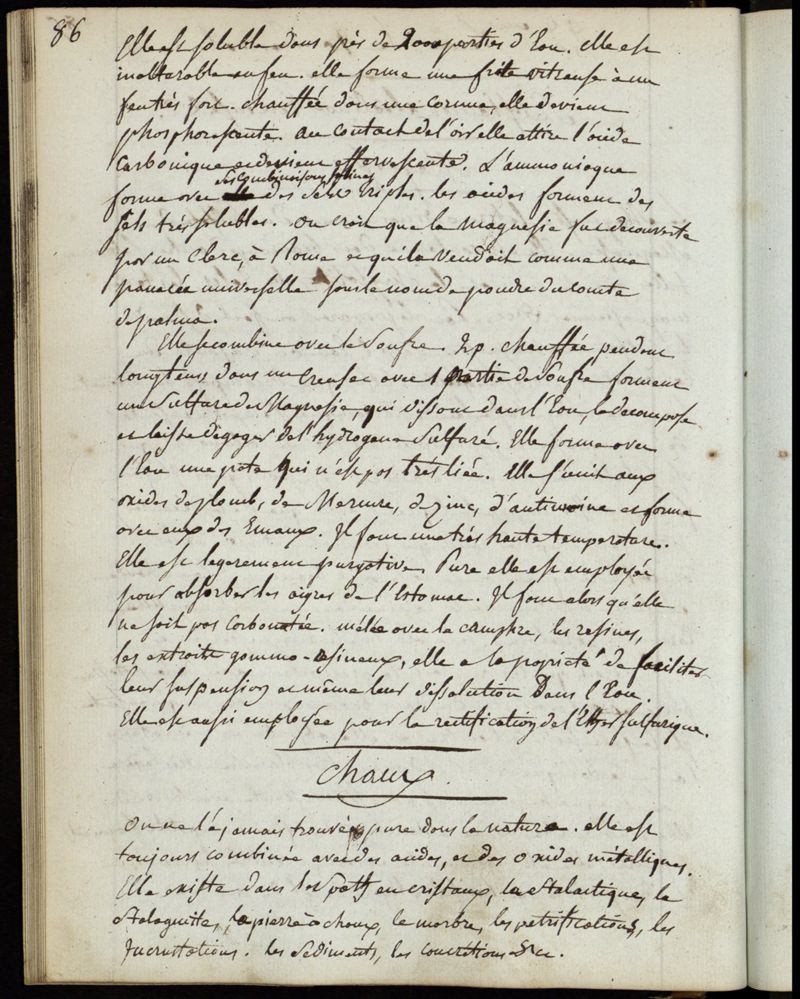 86
Elle est soluble dans près de 2000 parties d'Eau. elle est
inaltérable au feu. elle forme une frite vitreuse à un
feu très fort. chauffée dans une cornue, elle devient
phosphorescente. au contact de l'air elle attire l'acide
carbonique et devient effervescente. L'ammoniaque
ses combinaisons salines
forme avec des sels triples. les acides forment des
sels très solubles. on croit que la magnesie fut decouverte
par un clerc, à Rome et qu'il la vendoit comme une
panacée universelle sous le nom de poudre du comte
de palma.
Elle se combine avec le Soufre. 2 p. chauffée pendant
longtems dans un creuset avec 1 partie de Soufre forment
un Sulfure de Magnesie, qui dissout dans l'Eau, la decompose
et laisse degager de l'hydrogene Sulfuré. Elle forme avec
l'Eau une pate qui n'est pas très liée. Elle s'unit aux
oxides de plomb, de Mercure, de zinc, d'antimoine et forme
avec eux des Emaux. Il faut une très haute temperature.
Elle est legerement purgative. Pure elle est employée
pour absorber les aigres de l'Estomac. Il faut alors qu'elle
ne soit pas carbonatée. mêlée avec le camphre, les resines,
les extraits gommo-resineux, elle a la propriété de faciliter
leur suspension et même leur dissolution Dans l'Eau.
Elle est aussi employée pour la rectification de l'Ether sulfurique.
Chaux.
On ne l'a jamais trouvée pure dans la nature. elle est
toujours combinée avec des acides, et des oxides métalliques.
Elle existe dans les spaths en cristaux, la stalactique, la
stalagmite, la pierre à chaux, le marbre, les petrifications, les
Incrustations. les sediments, les concretions &ca.